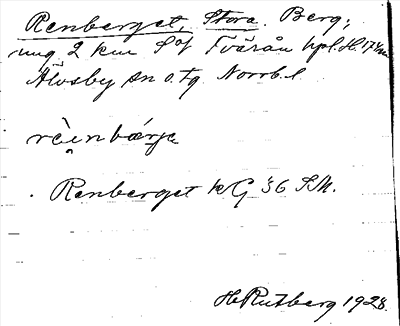 Renberget, Stora. Berg;
ung 2 km S of Tvärån hpl. H.
Älvsby sn o. tg. Norrb. l.
rèinbærje
Renberget kG 36 S.M.
H Rutberg 1928.